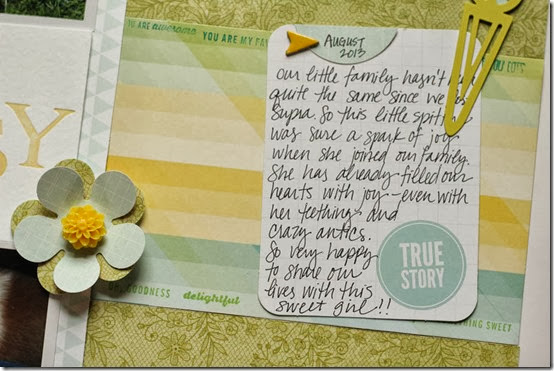 YOU ARE awesome
YOU ARE MY FA
YOU LOTS
AUGUST
2013
OUR little family hasn't
quite the same since we
Supra. So this little
was sure a spark of joy
when she joined our family.
She has already filled our
hearts with joy - even with
her teething and
crazy antics.
So very happy
to share our
lives with this
sweet girl!!
TRUE
STORY
SY
GOODNESS
delightful
SWEET